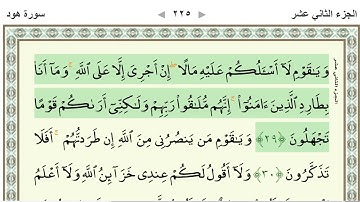 الجزء الثاني عشر ٢٢٥ سورة هود
وَيَٰقَوْمِ لَآ أَسْـَٔلُكُمْ عَلَيْهِ مَالًا ۖ إِنْ أَجْرِىَ إِلَّا عَلَى ٱللَّهِ ۚ وَمَآ أَنَا۠
بِطَارِدِ ٱلَّذِينَ ءَامَنُوٓا۟ ۚ إِنَّهُم مُّلَٰقُوا۟ رَبِّهِمْ وَلَٰكِنِّىٓ أَرَىٰكُمْ قَوْمًا
تَجْهَلُونَ ﴿٢٩﴾ وَيَٰقَوْمِ مَن يَنصُرُنِى مِنَ ٱللَّهِ إِن طَرَدتُّهُمْ ۚ أَفَلَا
تَذَكَّرُونَ ﴿٣٠﴾ وَلَآ أَقُولُ لَكُمْ عِندِى خَزَآئِنُ ٱللَّهِ وَلَآ أَعْلَمُ